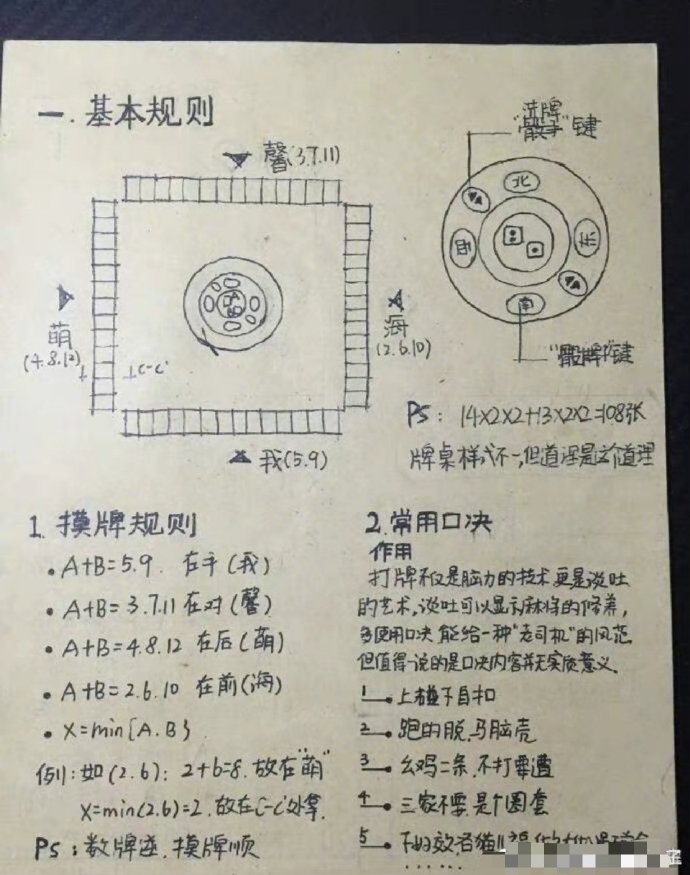 一.基本规则
馨(3.7.11)
萌
(4.8.12)
C-C'
海
(2.6.10)
我(5.9)
洗牌
"骰子"键
北
西
东
南
"骰牌"键
PS: 14×2×2+13×2×2=108张
牌桌样式不一,但道理是这个道理
1.摸牌规则
• A+B=5.9. 在手(我)
• A+B=3.7.11 在对(馨)
• A+B=4.8.12 在后(萌)
• A+B=2.6.10 在前(海)
• X=min{A.B}
例1:如(2.6): 2+6=8.放在"萌"
X=min(2.6)=2.放在C-C'处拿.
PS:数牌逆.摸牌顺
2.常用口决
作用
打牌不仅是脑力的技术更是谈吐
的艺术,谈吐可以显示麻将的修养,
多使用口决 能给一种"老司机"的风范
但值得一说的是口决内容并无实质意义.
1—.上碰下自扣
2—.跑的脱,马脑壳
3—.幺鸡二条,不打要遭
4—.三家不要,是个圈套
5—.
......